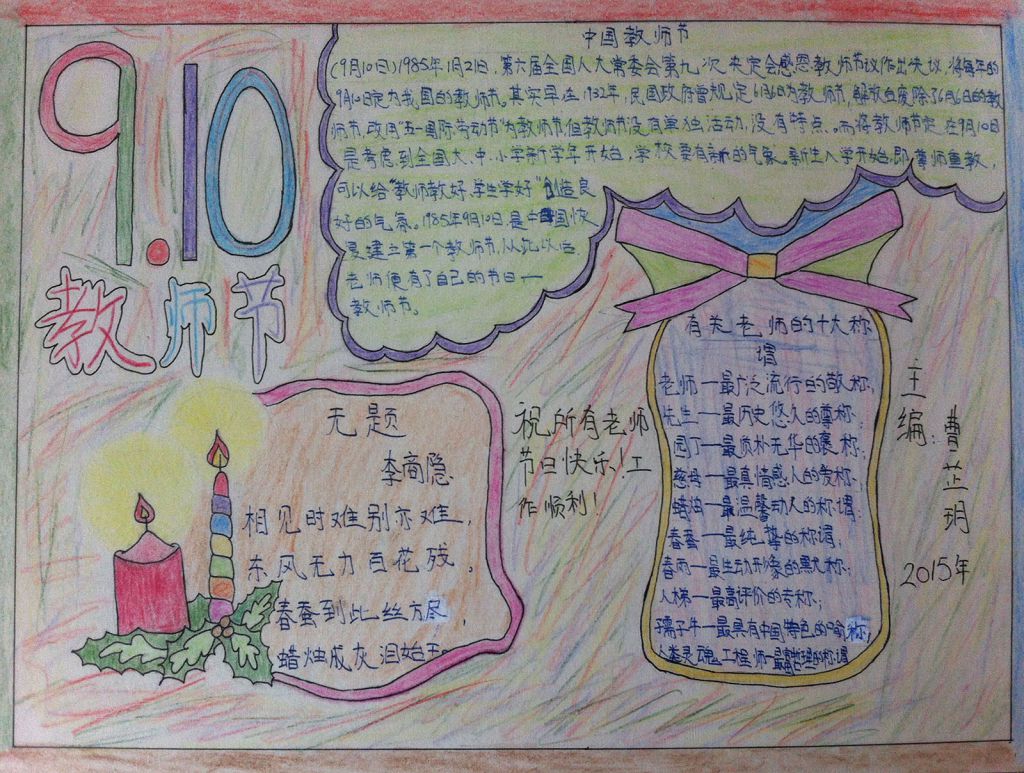 9.10
教师节
中国教师节
(9月10日)1985年1月21日，第六届全国人大常委会第九次决定会感恩教师节议作出决议，将每年的
9月10日定为我国的教师节。其实早在1932年，民国政府曾规定6月6日为教师节，解放后废除了6月6日的教
师节，改用"五一国际劳动节"为教师节但教师节没有单独活动，没有特点。而将教师节定在9月10日
是考虑到全国大、中、小学新学年开始，学校要有新的气象。新生入学开始，即尊师重教，
可以给"教师教好，学生学好"创造良
好的气氛。1985年9月10日，是中国恢
复建立第一个教师节，从此以后
老师便有了自己的节日一
教师节。
无题
李商隐
相见时难别亦难，
东风无力百花残。
春蚕到此丝方尽，
蜡烛成灰泪始干
祝所有老师
节日快乐！工
作顺利！
有关老师的十大称
谓
老师一最广泛流行的敬称；
先生一最历史悠久的尊称；
园丁一最质朴无华的褒称；
慈母一最真情感人的爱称；
蜡烛一最温馨动人的称谓；
春蚕一最纯挚的称谓；
春雨一最生动形象的默称；
人梯一最高评价的专称；
孺子牛一最具有中国特色的喻称；
人类灵魂工程师一最富哲理的称谓
主编：曹芷玥
2015年